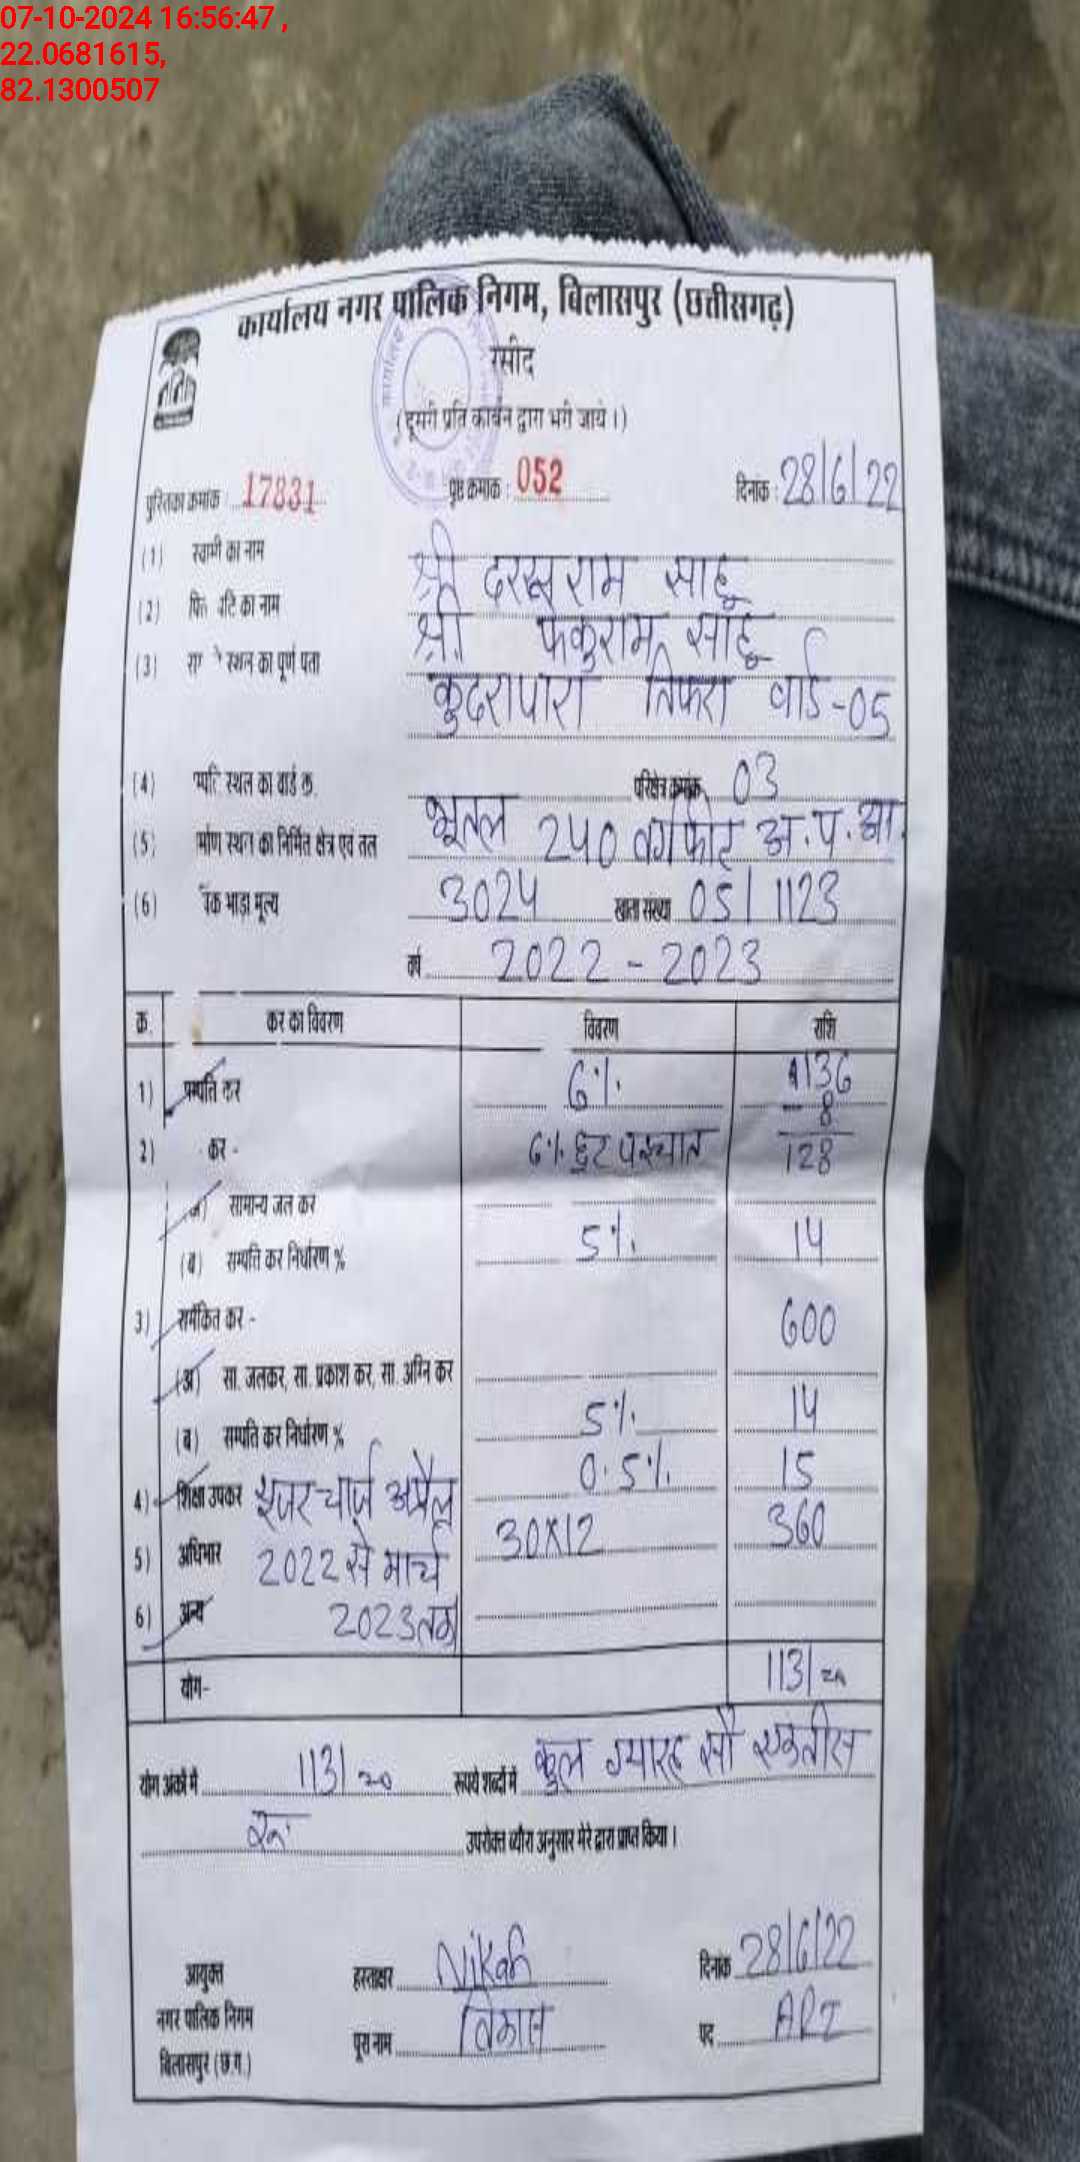 07-10-2024 16:56:47 ,
22.0681615,
82.1300507
कार्यालय नगर पालिक निगम, बिलासपुर (छत्तीसगढ़)
रसीद
(दूसरी प्रति कार्बन द्वारा भरी जाये ।)
पुस्तिका क्रमांक : 17831 पृष्ठ क्रमांक : 052 दिनांक : 28/6/22
(1) स्वामी का नाम श्री दरसराम साहू
(2) का नाम श्री फेकुराम साहू
(3) स्थल का पूर्ण पता कुदरापारा तिफरा वार्ड-05
(4) स्थल का वार्ड क्र. परिक्षेत्र क्रमांक 03
(5) स्थल का निर्मित क्षेत्र एवं तल भूतल 240 वर्गफीट अ.प.आ.
(6) भाड़ा मूल्य 3024 खाता संख्या 05/1123
वर्ष 2022-2023
क्र. कर का विवरण विवरण राशि
1) सम्पत्ति कर 6% 136
- 8
2) कर - 6% छुट पश्चात 128
(अ) सामान्य जल कर
(ब) सम्पत्ति कर निर्धारण % 5% 14
3) समेकित कर - 600
(अ) सा. जलकर, सा. प्रकाश कर, सा. अग्नि कर
(ब) सम्पत्ति कर निर्धारण % 5% 14
4) शिक्षा उपकर यूजर चार्ज अप्रैल 0.5% 15
5) अधिभार 2022 से मार्च 30X12 360
6) अन्य 2023 तक
योग- 1131
योग अंकों में 1131 रूपये शब्दों में कुल ग्यारह सौ एकतीस
रू. उपरोक्त ब्यौरा अनुसार मेरे द्वारा प्राप्त किया ।
आयुक्त हस्ताक्षर दिनांक 28/6/22
नगर पालिक निगम पूरा नाम विकास पद ARI
बिलासपुर (छ.ग.)